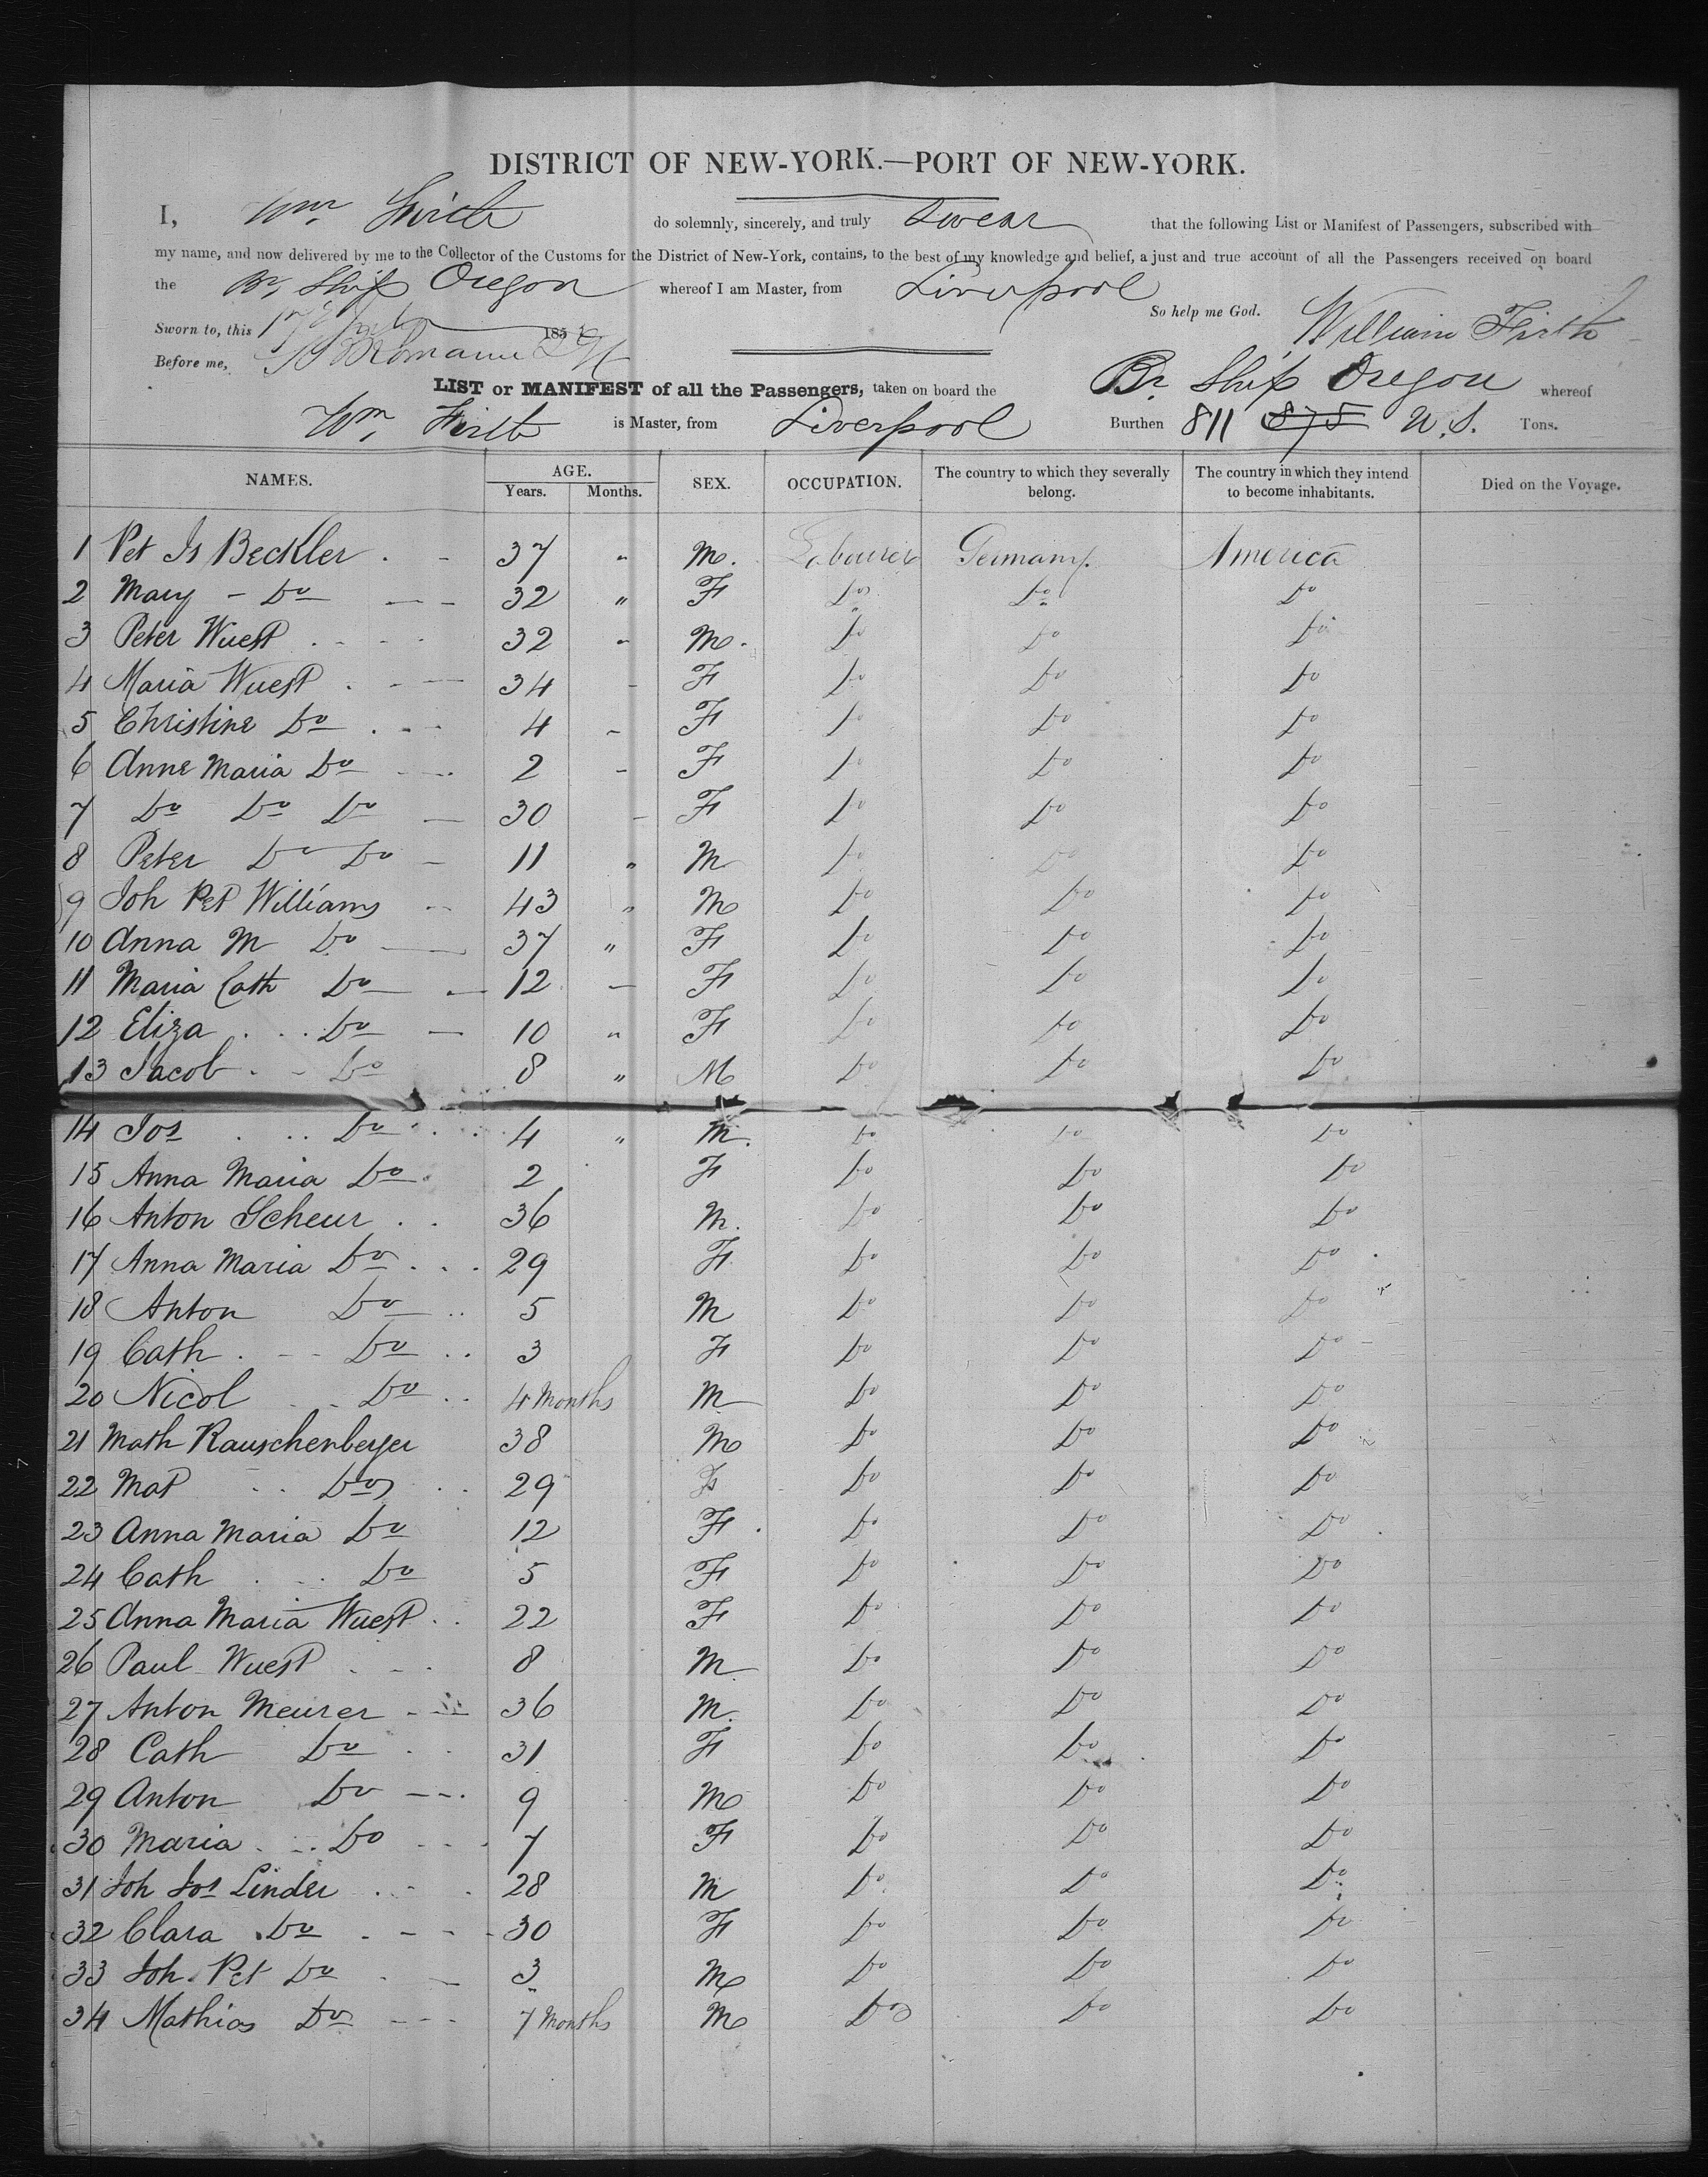 DISTRICT OF NEW-YORK.—PORT OF NEW-YORK.
I, Wm Firth do solemnly, sincerely, and truly Swear that the following List or Manifest of Passengers, subscribed with
my name, and now delivered by me to the Collector of the Customs for the District of New-York, contains, to the best of my knowledge and belief, a just and true account of all the Passengers received on board
the Br, Ship Oregon whereof I am Master, from Liverpool
So help me God. William Firth
Sworn to, this 17 185
Before me,
LIST or MANIFEST of all the Passengers, taken on board the Br. Ship Oregon whereof
Wm, Firth is Master, from Liverpool Burthen 811 875 U.S. Tons.
NAMES. AGE. SEX. OCCUPATION. The country to which they severally belong. The country in which they intend to become inhabitants. Died on the Voyage.
Years. Months.
1 Pet Js Beckler 37 " M. Labourer Germany. America
2 Mary - Do 32 " F Do Do Do
3 Peter Wuest 32 " M. Do Do Do
4 Maria Wuest 34 - F Do Do Do
5 Christine Do 4 - F Do Do Do
6 Anne Maria Do 2 - F Do Do Do
7 Do Do Do 30 - F Do Do Do
8 Peter Do Do 11 " M Do Do Do
9 Joh Pet Williams 43 " M Do Do Do
10 Anna M Do 37 " F Do Do Do
11 Maria Cath Do 12 - F Do Do Do
12 Eliza Do 10 " F Do Do Do
13 Jacob Do 8 " M Do Do Do
14 Jos Do 4 " M. Do Do Do
15 Anna Maria Do 2 F Do Do Do
16 Anton Scheur 36 M. Do Do Do
17 Anna Maria Do 29 F Do Do Do
18 Anton Do 5 M Do Do Do
19 Cath Do 3 F Do Do Do
20 Nicol Do 4 Months M Do Do Do
21 Math Rauschenberger 38 M Do Do Do
22 Mat Do 29 F Do Do Do
23 Anna Maria Do 12 F Do Do Do
24 Cath Do 5 F Do Do Do
25 Anna Maria Wuest 22 F Do Do Do
26 Paul Wuest 8 M Do Do Do
27 Anton Meurer 36 M. Do Do Do
28 Cath Do 31 F Do Do Do
29 Anton Do 9 M Do Do Do
30 Maria Do 7 F Do Do Do
31 Joh Jos Linder 28 M Do Do Do
32 Clara Do 30 F Do Do Do
33 Joh. Pet Do 3 M Do Do Do
34 Mathias Do 7 Months M Do Do Do